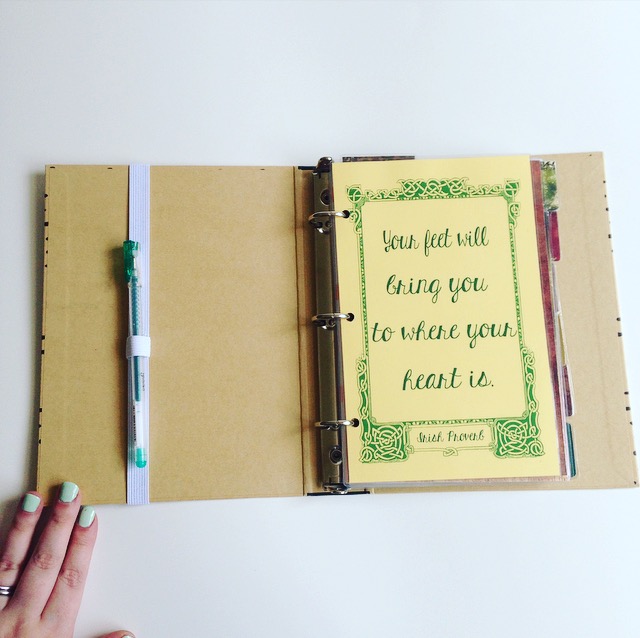 Your feet will
bring you
to where your
heart is.
Irish Proverb